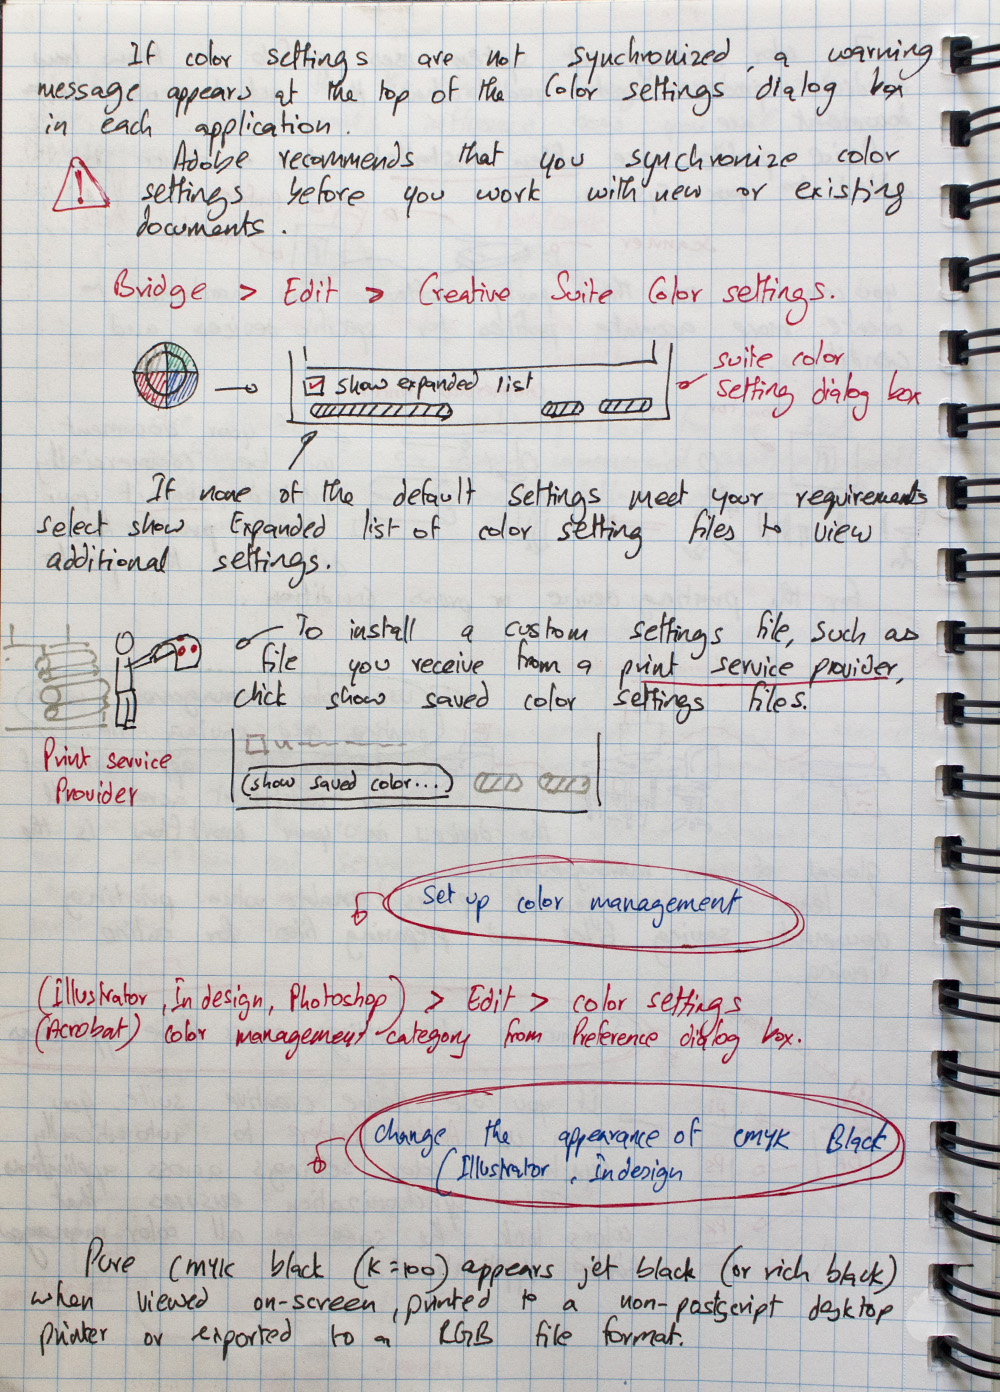 If color settings are not synchronized, a warning
message appears at the top of the Color settings dialog box
in each application.
Adobe recommends that you synchronize color
settings before you work with new or existing
documents.
Bridge > Edit > Creative Suite Color settings.
show expanded list
suite color
setting dialog box
If none of the default settings meet your requirements
select show Expanded list of color setting files to view
additional settings.
To install a custom settings file, such as
file you receive from a print service provider,
click show saved color settings files.
Print service
Provider
(show saved color...)
Set up color management
(Illustrator, In design, Photoshop) > Edit > color settings
(Acrobat) color management category from Preference dialog box.
change the appearance of cmyk Black
(Illustrator, Indesign
Pure cmyk black (k=100) appears jet black (or rich black)
when viewed on-screen, printed to a non-postscript desktop
printer or exported to a RGB file format.